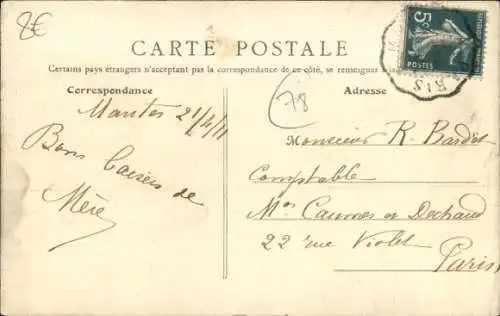 8€
5c
POSTES
RIS
CARTE POSTALE
Certains pays étrangers n'acceptant pas la correspondance de ce côté, se renseigner
Correspondance
Adresse
78
Mantes 21/4/11
Bons baisers de
Mère
Monsieur R. Bardot
Comptable
Mon Caumes et Dechaud
22 rue Violet
Paris